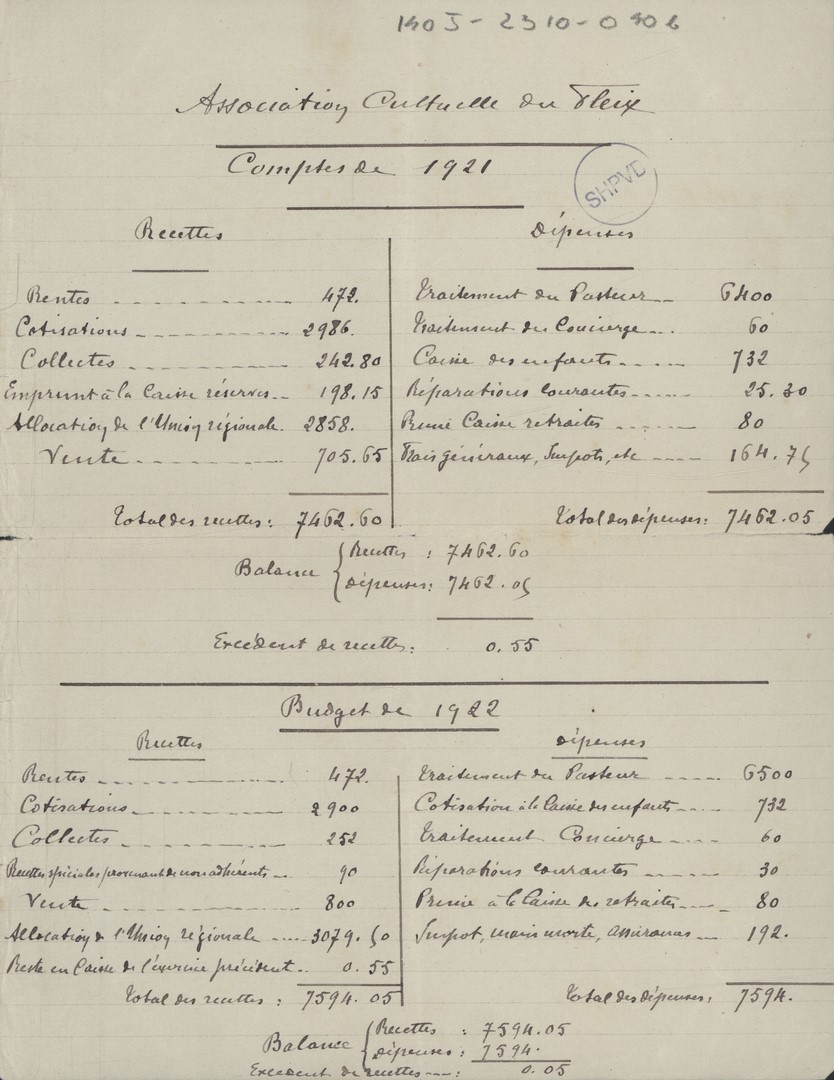 140J-2310-0406
Association Cultuelle du Fleix
Comptes de 1921
SHPVD
Recettes
Rentes 472.
Cotisations 2986.
Collectes 242.80
Emprunt à la Caisse réserves 198.15
Allocation de l'Union régionale. 2858.
Vente 705.65
Total des recettes: 7462.60
Dépenses
Traitement du Pasteur 6400
Traitement du Concierge 60
Caisse des enfants 732
Réparations courantes 25.30
Prime Caisse retraites 80
Frais généraux, Impots, etc 164.75
Total des dépenses: 7462.05
Balance
Recettes : 7462.60
Dépenses: 7462.05
Excédent de recettes: 0.55
Budget de 1922
Recettes
Rentes 472.
Cotisations 2900
Collectes 252
Recettes spéciales provenant de non adhérents 90
Vente 800
Allocation de l'Union régionale 3079.50
Reste en Caisse de l'exercice précédent 0.55
Total des recettes : 7594.05
Dépenses
Traitement du Pasteur 6500
Cotisation à la Caisse des enfants 732
Traitement Concierge 60
Réparations courantes 30
Prime à la Caisse des retraites 80
Impot, main morte, assurances 192.
Total des dépenses: 7594.
Balance
Recettes : 7594.05
Dépenses : 7594.
Excédent de recettes : 0.05